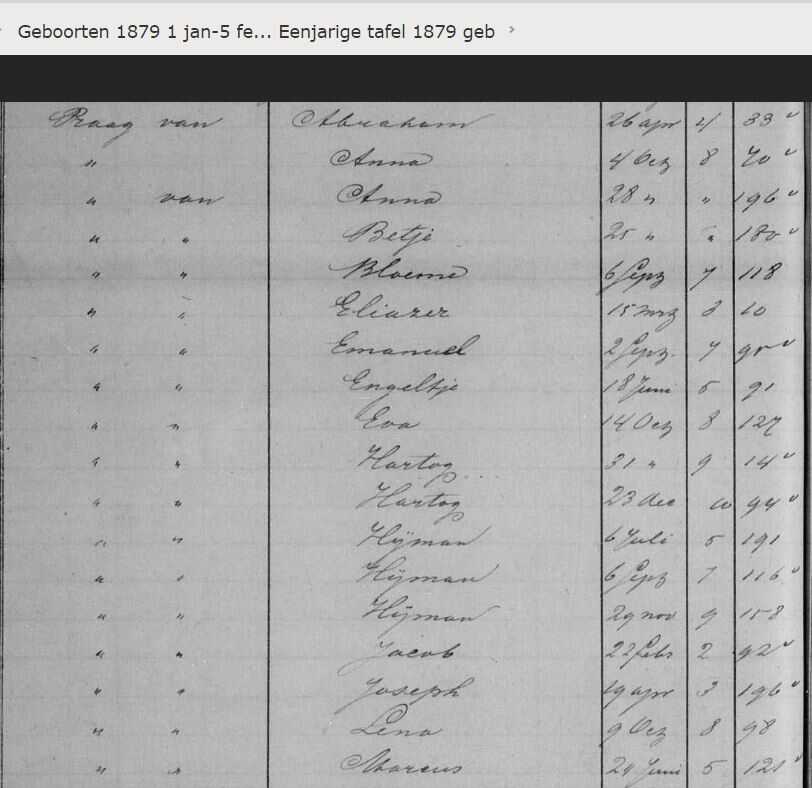 Geboorten 1879 1 jan-5 fe... Eenjarige tafel 1879 geb
Praag van Abraham 26 apr 4 33
" Anna 4 Oct 8 70
" van Anna 28 " " 196
" " Betje 25 " " 180
" " Bloeme 6 Sept 7 118
" " Eliazer 15 mrt 3 10
" " Emanuel 2 Sept. 7
" " Engeltje 18 Juni 5 91
" " Eva 14 Oct 8 127
" " Hartog 31 " 9 14
" " Hartog 23 dec 10 94
" " Hijman 6 Juli 5 191
" " Hijman 6 Sept 7 116
" " Hijman 29 nov 9 158
" " Jacob 22 Feb 2 92
" " Joseph 19 apr 3 196
" " Lena 9 Oct 8 98
" " Marcus 24 Juni 5 121